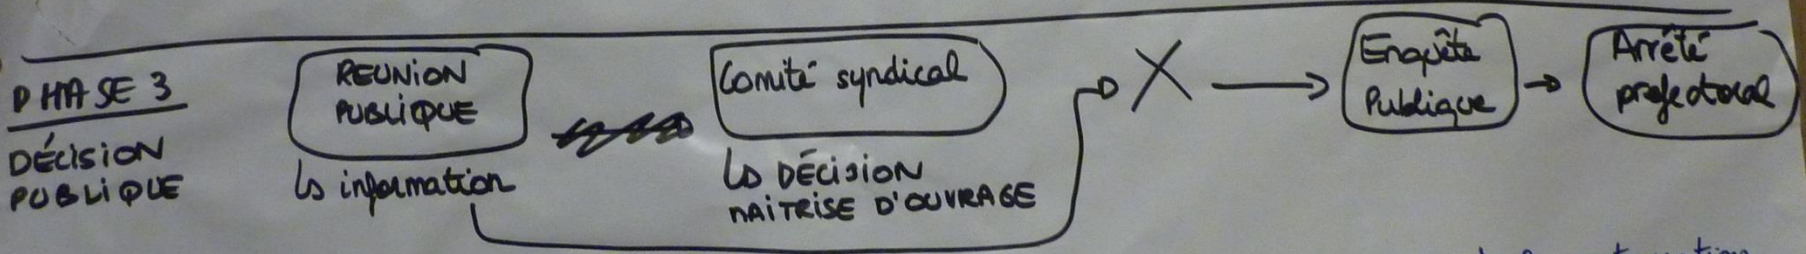 PHASE 3
DÉCISION
PUBLIQUE
REUNION
PUBLIQUE
↳ information
Comité syndical
↳ DÉCISION
MAITRISE D'OUVRAGE
X
Enquête
Publique
Arrêté
préfectoral